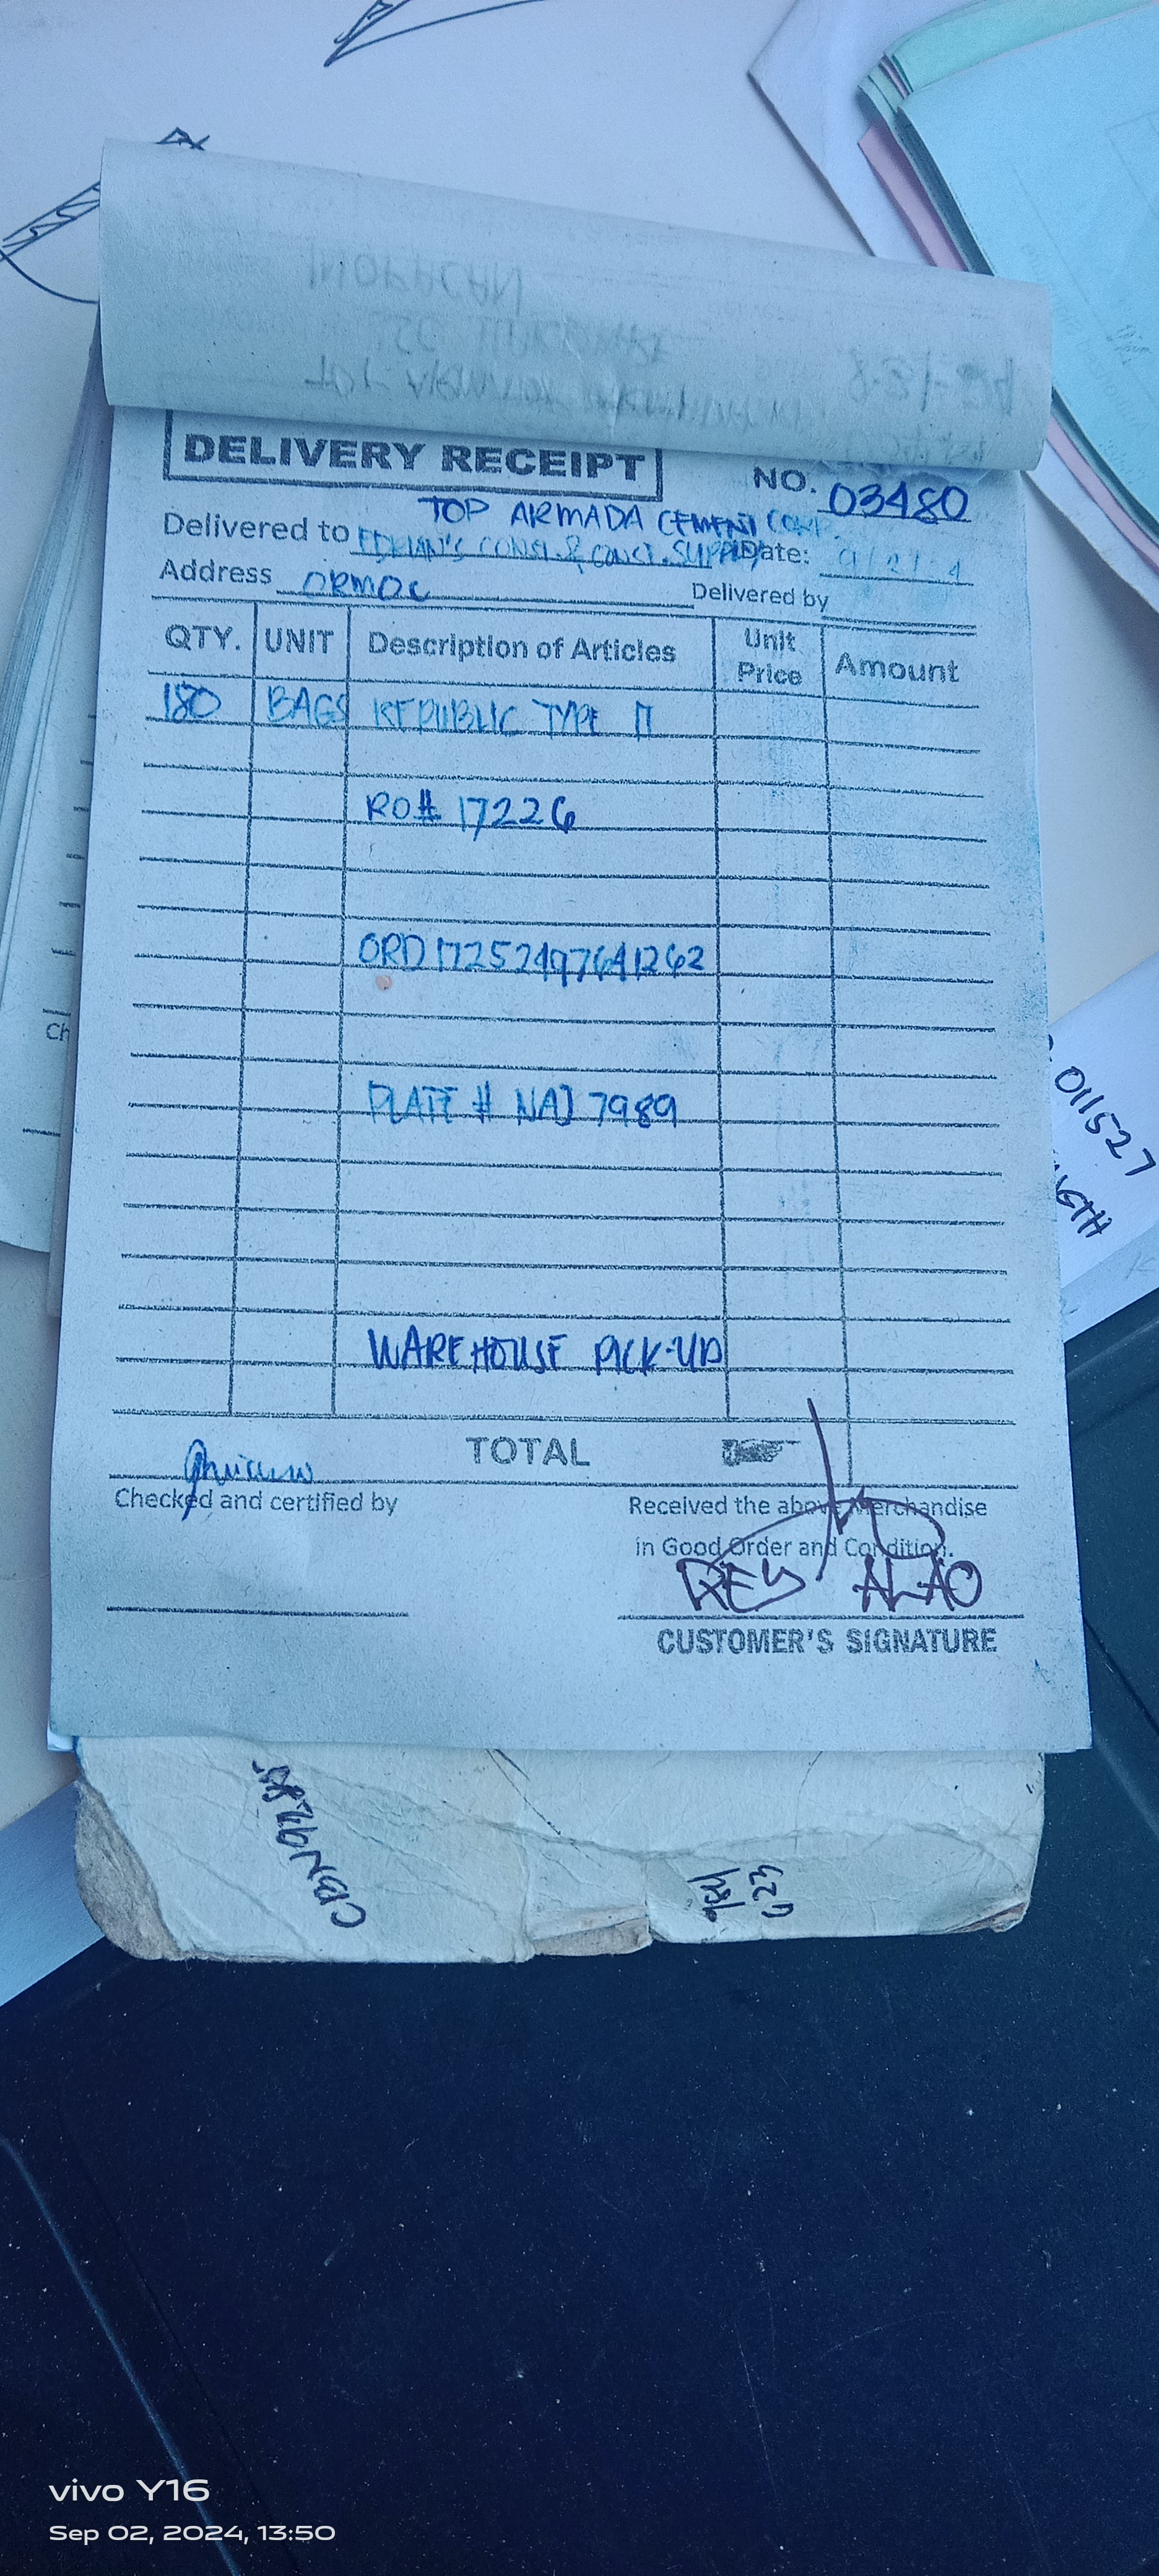 DELIVERY RECEIPT
NO. 03480
TOP ARMADA CEMENT CORP.
Delivered to EDRIAN'S CONST. & CONCT. SUPPLY Date: 9/2/24
Address ORMOC Delivered by
QTY. UNIT Description of Articles Unit Price Amount
180 BAGS REPUBLIC TYPE II
RO# 17226
ORD17252497641262
PLATE # NAJ 7989
WAREHOUSE PICK-UP
TOTAL
Checked and certified by
Received the above Merchandise
in Good Order and Condition.
REY ALAO
CUSTOMER'S SIGNATURE
011527
Ch
623
vivo Y16
Sep 02, 2024, 13:50